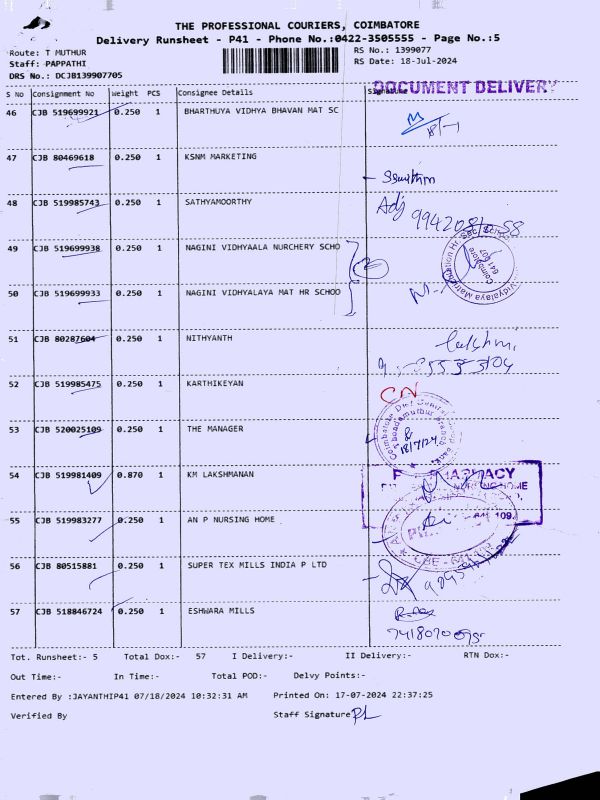 THE PROFESSIONAL COURIERS, COIMBATORE
Delivery Runsheet - P41 - Phone No.:0422-3505555 - Page No.:5
Route: T MUTHUR RS No.: 1399077
Staff: PAPPATHI RS Date: 18-Jul-2024
DRS No.: DCJB139907705
DOCUMENT DELIVERY
S No Consignment No Weight PCS Consignee Details Signature
46 CJB 519699921 0.250 1 BHARTHUYA VIDHYA BHAVAN MAT SC
47 CJB 80469618 0.250 1 KSNM MARKETING
48 CJB 519985743 0.250 1 SATHYAMOORTHY
49 CJB 519699938 0.250 1 NAGINI VIDHYAALA NURCHERY SCHO
50 CJB 519699933 0.250 1 NAGINI VIDHYALAYA MAT HR SCHOO
51 CJB 80287604 0.250 1 NITHYANTH lakshmi
52 CJB 519985475 0.250 1 KARTHIKEYAN CN
53 CJB 520025109 0.250 1 THE MANAGER 18/7/24
54 CJB 519981409 0.870 1 KM LAKSHMANAN
55 CJB 519983277 0.250 1 AN P NURSING HOME
56 CJB 80515881 0.250 1 SUPER TEX MILLS INDIA P LTD
57 CJB 518846724 0.250 1 ESHWARA MILLS
Tot. Runsheet:- 5 Total Dox:- 57 I Delivery:- II Delivery:- RTN Dox:-
Out Time:- In Time:- Total POD:- Delvy Points:-
Entered By :JAYANTHIP41 07/18/2024 10:32:31 AM Printed On: 17-07-2024 22:37:25
Verified By Staff Signature